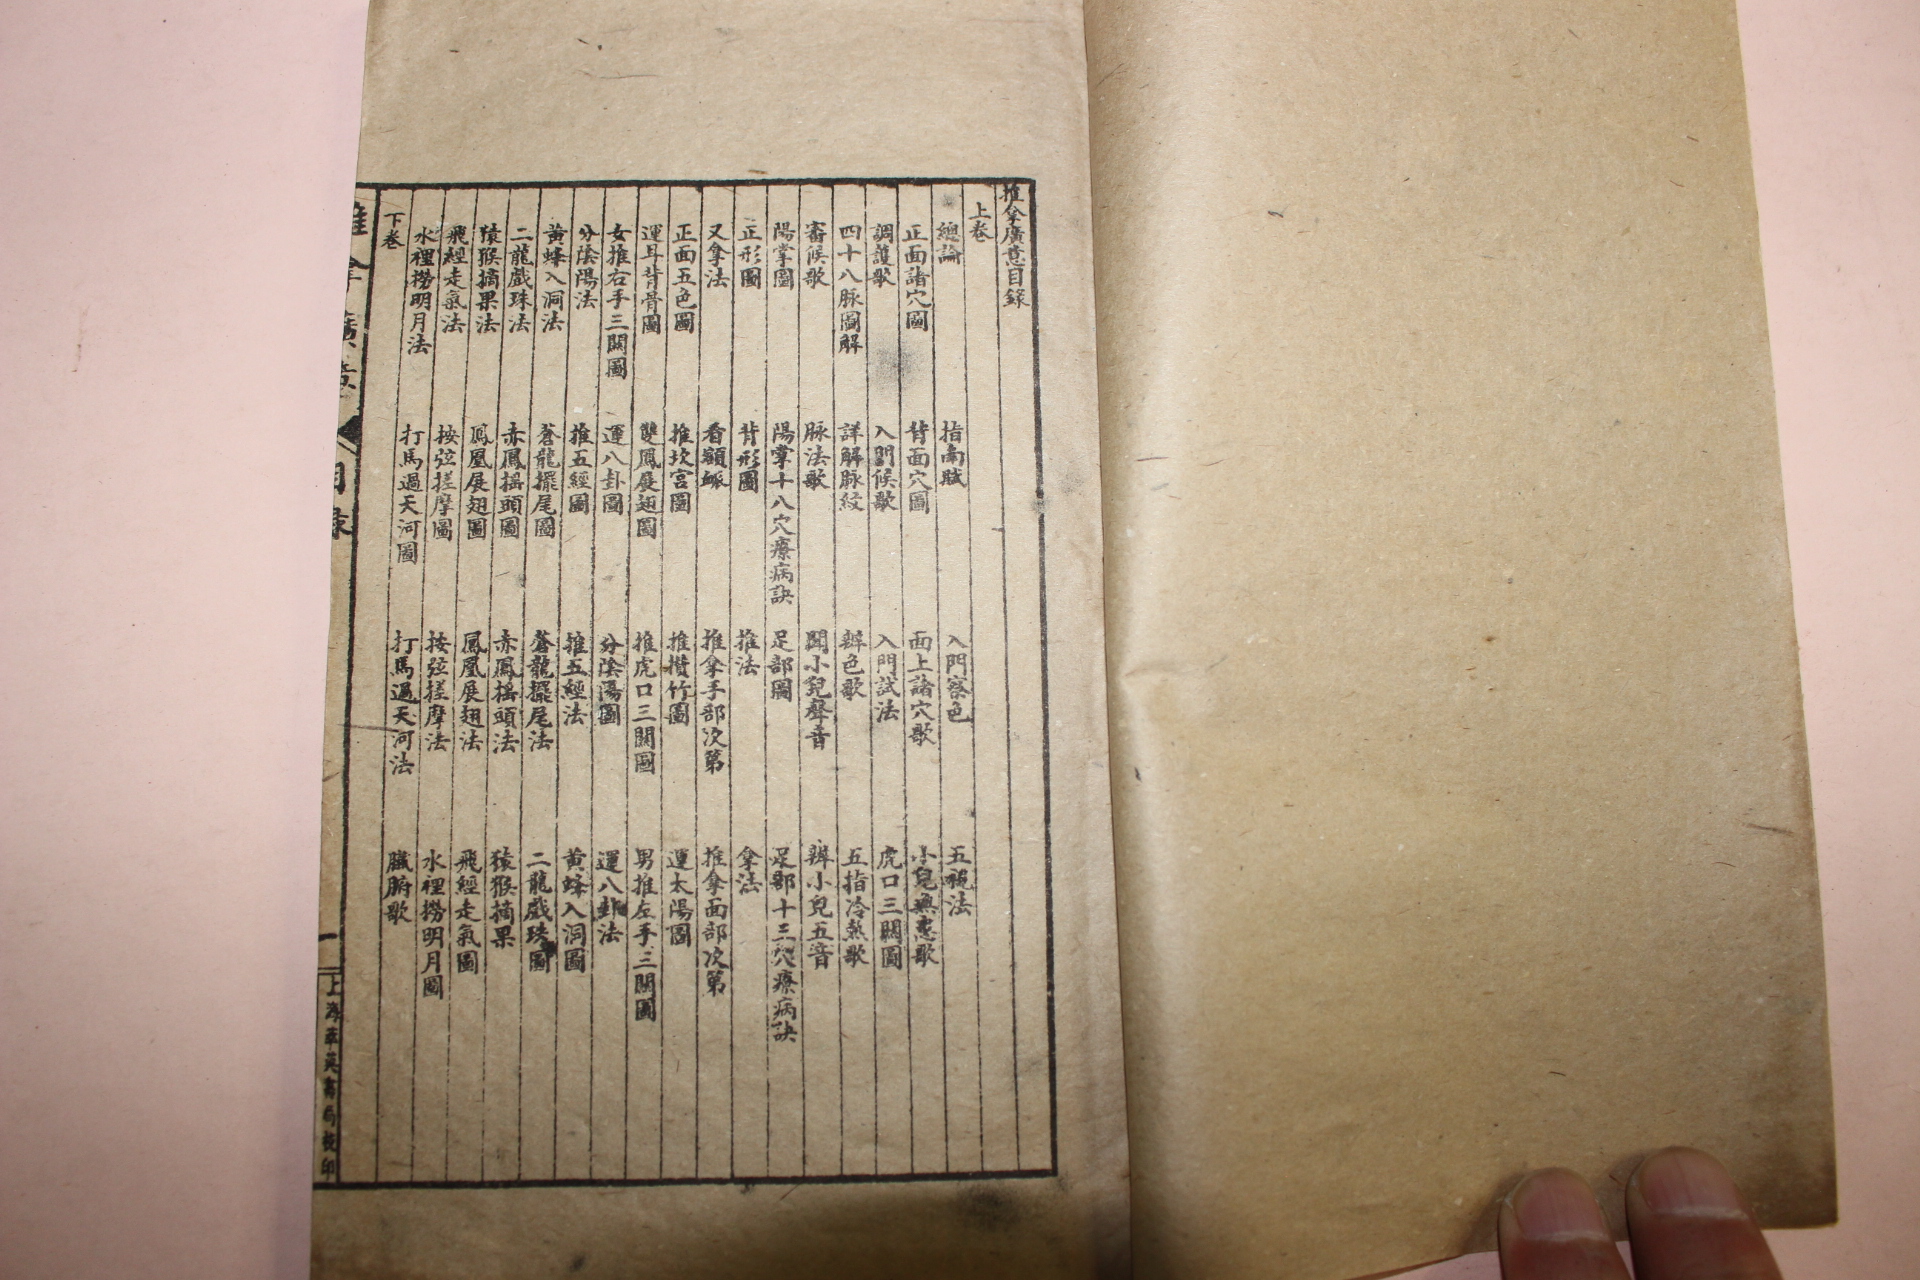 推拿廣意目錄
上卷
總論 指南賦 入門察色 五視法
正面諸穴圖 背面穴圖 面上諸穴歌 小兒無患歌
調護歌 入門候歌 入門試法 虎口三關圖
四十八脉圖解 詳解脉紋 辨色歌 五指冷熱歌
審候歌 脉法歌 聞小兒聲音 辨小兒五音
陽掌圖 陽掌十八穴療病訣 足部圖 足部十三穴療病訣
正形圖 背形圖 推法 拿法
又拿法 看額脉 推拿手部次第 推拿面部次第
正面五色圖 推坎宮圖 推攢竹圖 運太陽圖
運耳背骨圖 雙鳳展翅圖 推虎口三關圖 男推左手三關圖
女推右手三關圖 運八卦圖 分陰陽圖 運八卦法
分陰陽法 推五經圖 推五經法 黃蜂入洞圖
黃蜂入洞法 蒼龍擺尾圖 蒼龍擺尾法 二龍戲珠圖
二龍戲珠法 赤鳳搖頭圖 赤鳳搖頭法 猿猴摘果
猿猴摘果法 鳳凰展翅圖 鳳凰展翅法 飛經走氣圖
飛經走氣法 按弦搓摩圖 按弦搓摩法 水裡撈明月圖
水裡撈明月法 打馬過天河圖 打馬過天河法 臟腑歌
下卷
推拿廣意 目錄 一 上海萃英書局校印